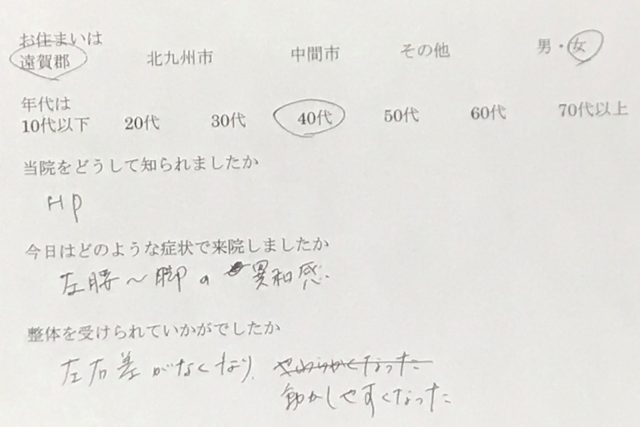 お住まいは
遠賀郡 北九州市 中間市 その他 男・女
年代は
10代以下 20代 30代 40代 50代 60代 70代以上
当院をどうして知られましたか
HP
今日はどのような症状で来院しましたか
左腰~脚の異和感.
整体を受けられていかがでしたか
左右差がなくなり、やわらかくなった
動かしやすくなった